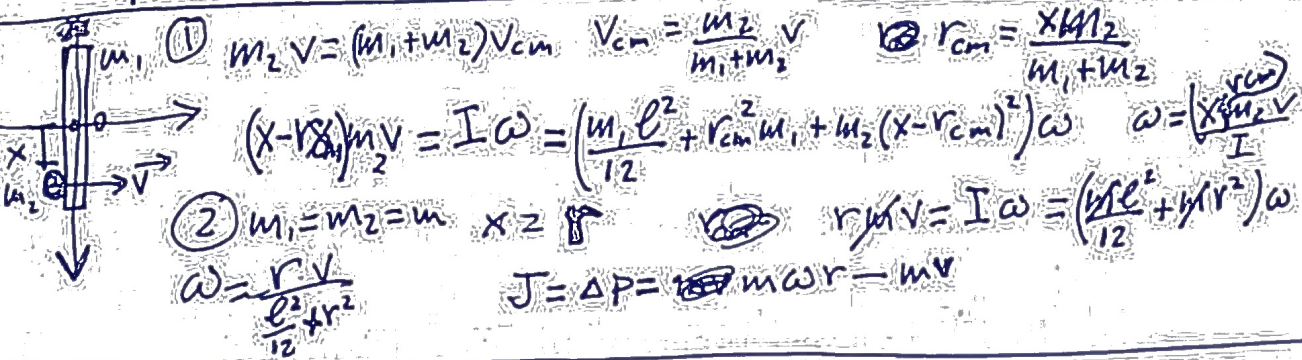 m₁ ① m₂ v = (m₁+m₂) v_cm   v_cm = m₂/(m₁+m₂) v   r_cm = x m₂/(m₁+m₂)
O
(x-r_cm) m₂ v = Iω = (m₁ℓ²/12 + r_cm² m₁ + m₂(x-r_cm)²) ω   ω = (x-r_cm) m₂ v/I
x
m₂ v⃗
② m₁ = m₂ = m   x = r   r m v = Iω = (mℓ²/12 + m r²) ω
ω = r v/(ℓ²/12 + r²)   J = Δp = mωr - mv